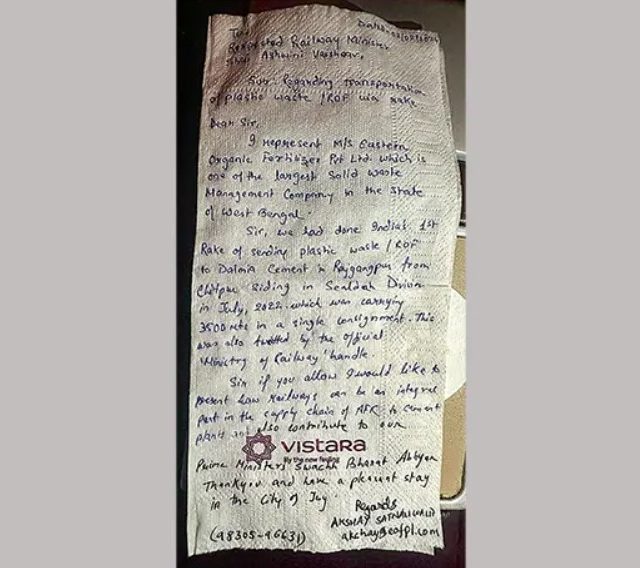 To,
Date:- 02/02/2024
Respected Railway Minister
Shri Ashwini Vaishnav,
Sub:- Regarding transportation
of plastic waste / RDF via rake
Dear Sir,
I represent M/s Eastern
Organic Fertilizer Pvt Ltd. which is
one of the largest Solid waste
Management Company in the State
of West Bengal.
Sir, we had done India's 1st
Rake of sending plastic waste / RDF
to Dalmia Cement in Rajgangpur from
Chitpur Siding in Sealdah Divion
in July, 2022. which was carrying
3500 mts in a single consignment. This
was also twitted by the official
'Ministry of Railway' handle
Sir if you allow I would like to
present how railways can be an integral
part in the supply chain of AFR to cement
plants and also contribute to our
VISTARA
fly the new feeling
Prime Ministers Swachh Bharat Abhyan
Thankyou and have a pleasent stay
in the City of Joy.
Regards
AKSHAY SATNALIWALA
(98305-96631)
akshay@eofpl.com